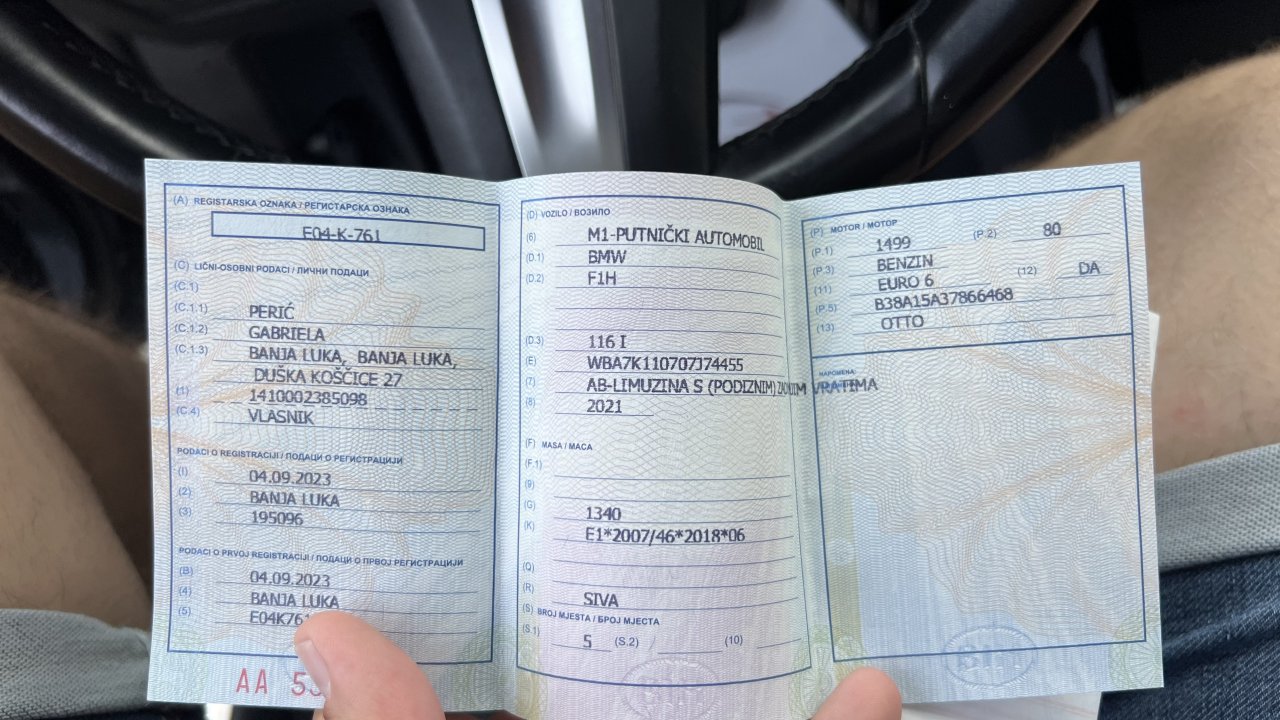 (A) REGISTARSKA OZNAKA / РЕГИСТАРСКА ОЗНАКА
E04-K-761
(C) LIČNI-OSOBNI PODACI / ЛИЧНИ ПОДАЦИ
(C.1)
(C.1.1) PERIĆ
(C.1.2) GABRIELA
(C.1.3) BANJA LUKA, BANJA LUKA,
DUŠKA KOŠČICE 27
(1) 1410002385098
(C.4) VLASNIK
PODACI O REGISTRACIJI / ПОДАЦИ О РЕГИСТРАЦИЈИ
(I) 04.09.2023
(2) BANJA LUKA
(3) 195096
PODACI O PRVOJ REGISTRACIJI / ПОДАЦИ О ПРВОЈ РЕГИСТРАЦИЈИ
(B) 04.09.2023
(4) BANJA LUKA
(5) E04K761
AA 53
(D) VOZILO / ВОЗИЛО
(6) M1-PUTNIČKI AUTOMOBIL
(D.1) BMW
(D.2) F1H
(D.3) 116 I
(E) WBA7K110707J74455
(7) AB-LIMUZINA S (PODIZNIM) ZADNJIM VRATIMA
(8) 2021
(F) MASA / МАСА
(F.1)
(9)
(G) 1340
(K) E1*2007/46*2018*06
(Q)
(R) SIVA
(S) BROJ MJESTA / БРОЈ МЈЕСТА
(S.1) 5 (S.2) (10)
(P) MOTOR / МОТОР
(P.1) 1499 (P.2) 80
(P.3) BENZIN
(11) EURO 6 (12) DA
(P.5) B38A15A37866468
(13) OTTO
NAPOMENA